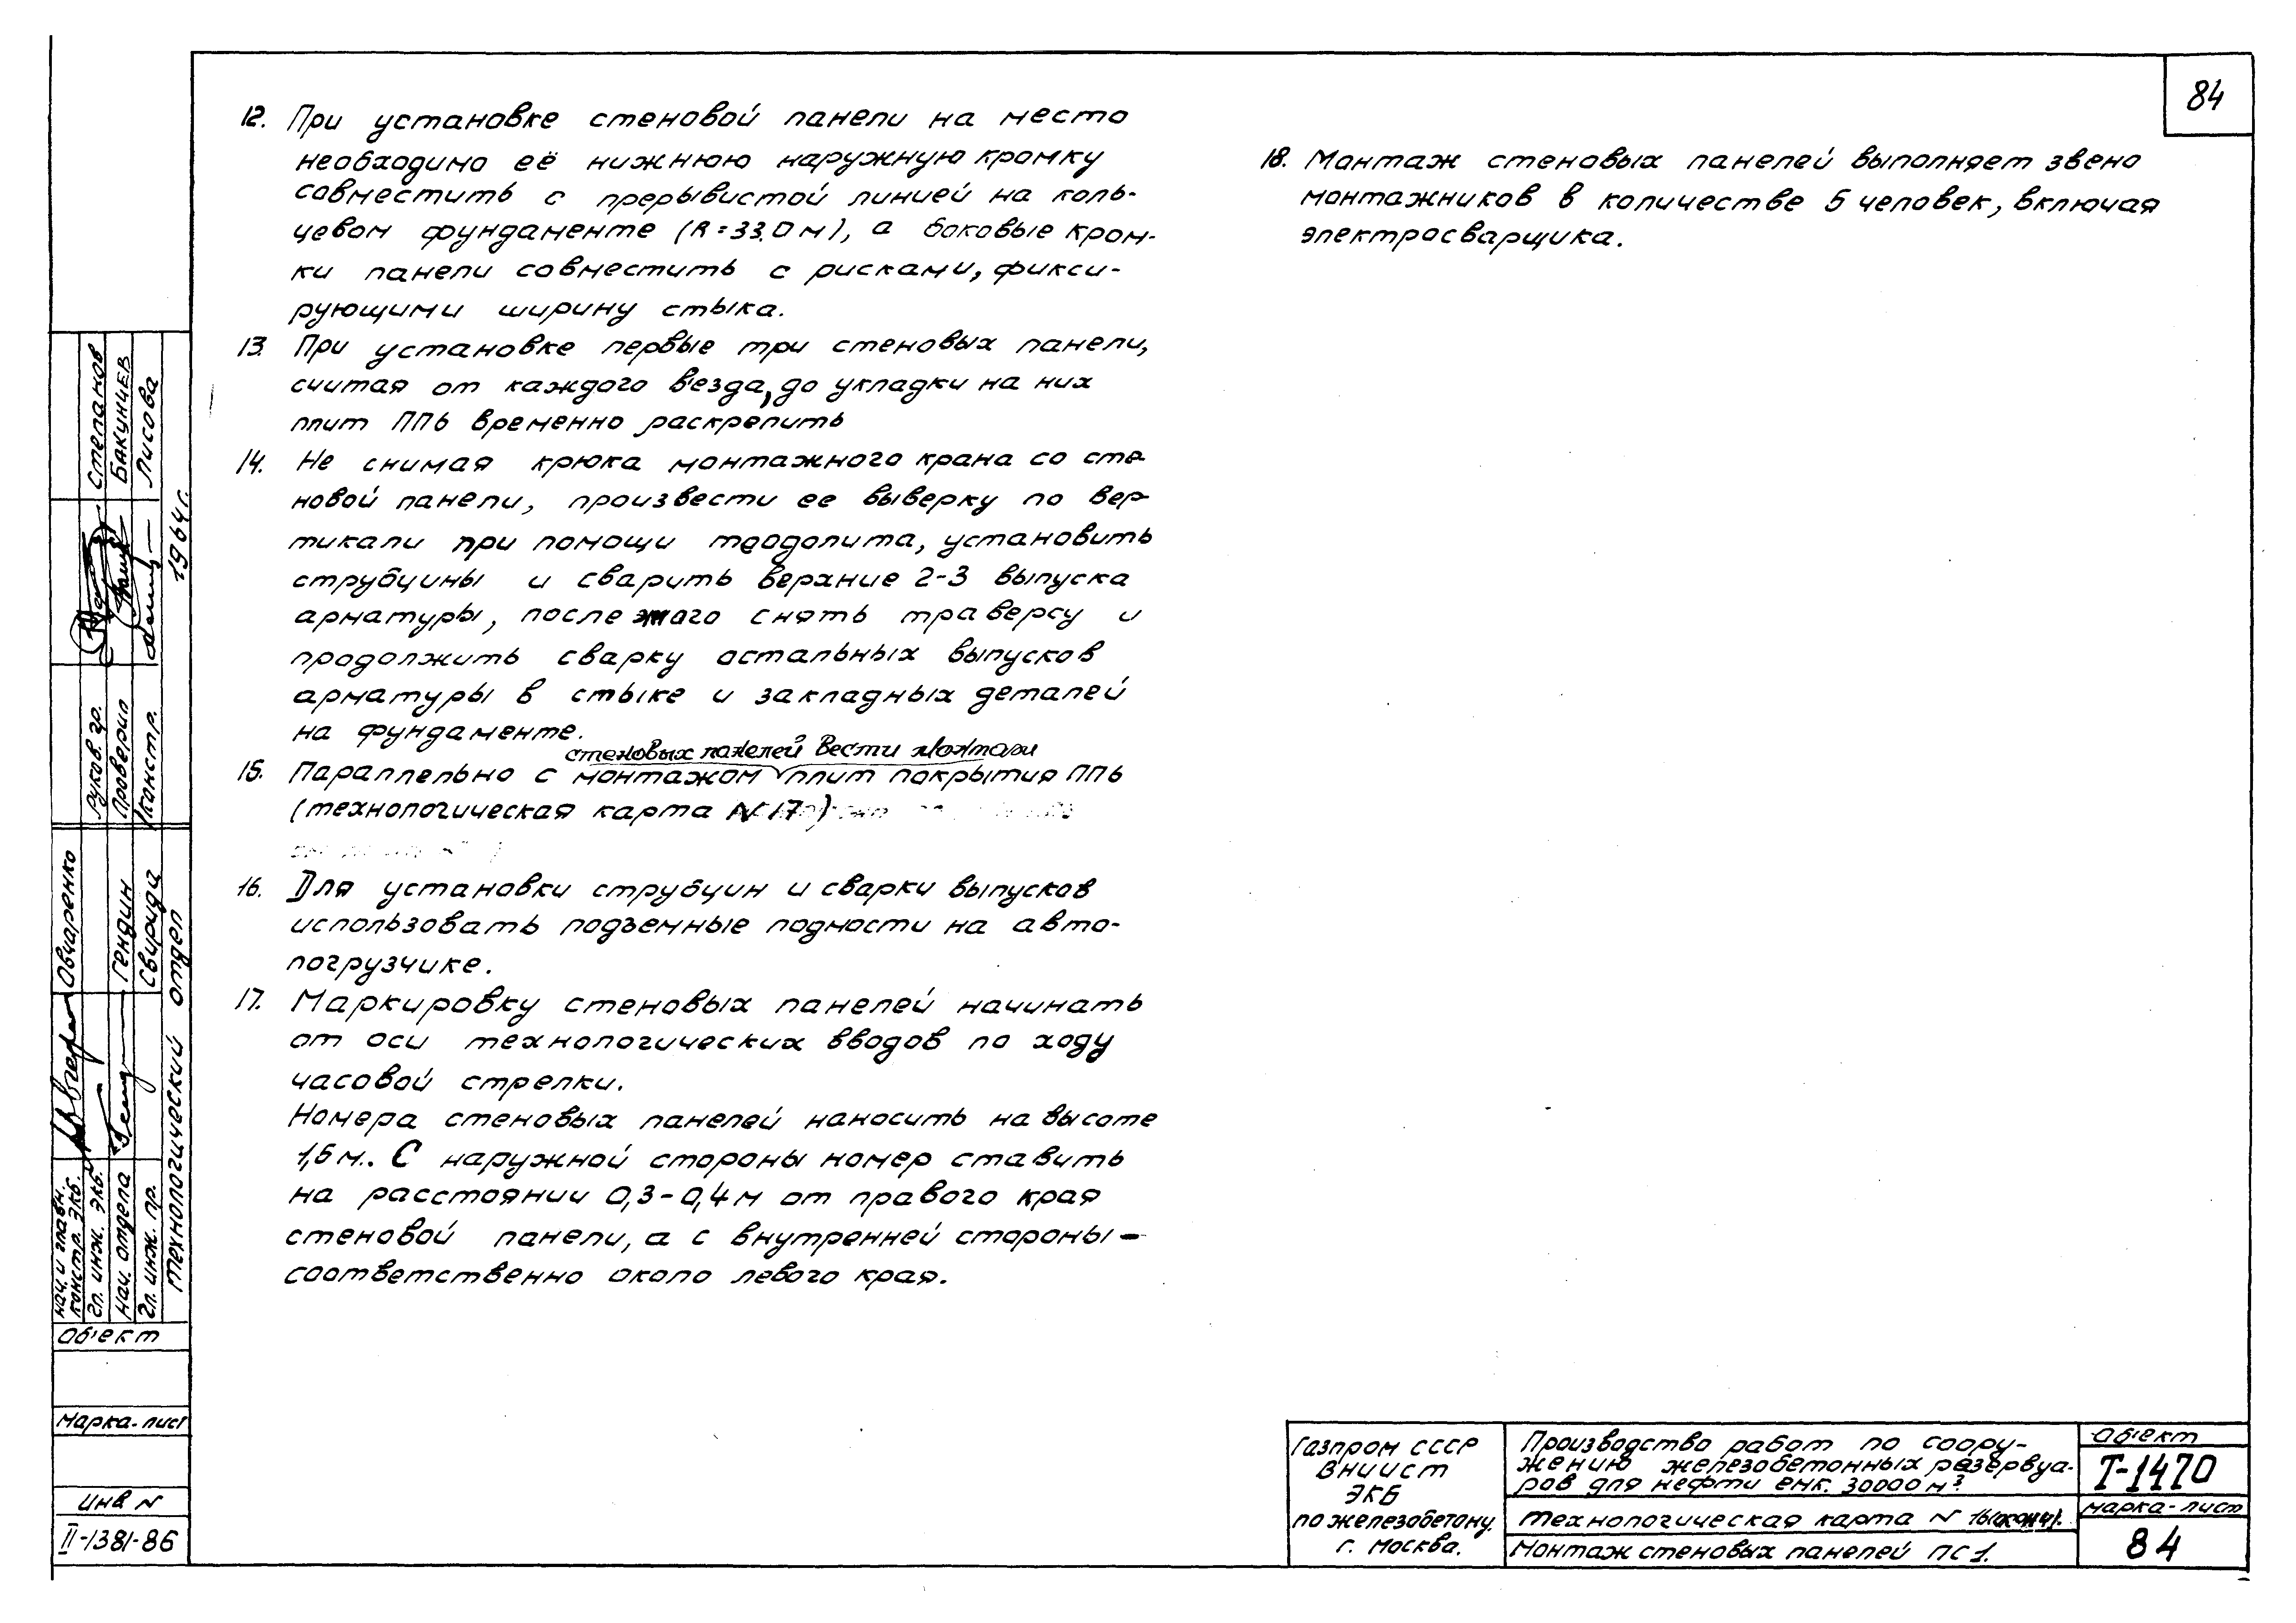 84
12. При установке стеновой панели на место
необходимо её нижнюю наружную кромку
совместить с прерывистой линией на коль-
цевом фундаменте (R=33.0 м), а боковые кром-
ки панели совместить с рисками, фикси-
рующими ширину стыка.
13. При установке первые три стеновых панели,
считая от каждого в'езда, до укладки на них
плит ПП6 временно раскрепить
14. Не снимая крюка монтажного крана со сте-
новой панели, произвести ее выверку по вер-
тикали при помощи теодолита, установить
струбцины и сварить верхние 2-3 выпуска
арматуры, после этого снять траверсу и
продолжить сварку остальных выпусков
арматуры в стыке и закладных деталей
на фундаменте.
стеновых панелей Вести монтаж
15. Параллельно с монтажом плит покрытия ПП6
(технологическая карта N 17)
16. Для установки струбцин и сварки выпусков
использовать подъемные подмости на авто-
погрузчике.
17. Маркировку стеновых панелей начинать
от оси технологических вводов по ходу
часовой стрелки.
Номера стеновых панелей наносить на высоте
1,5 м.. С наружной стороны номер ставить
на расстоянии 0,3-0,4 м от правого края
стеновой панели, а с внутренней стороны -
соответственно около левого края.
18. Монтаж стеновых панелей выполняет звено
монтажников в количестве 5 человек, включая
электросварщика.
Степанов
Бакунцев
Лисова
1964г.
Руков. гр.
Проверил
Констр.
Овчаренко
Гендин
Свирида
Нач. и главн.
констр. ЭКБ.
Гл. инж. ЭКБ.
Нач. отдела
Гл. инж. пр.
Технологический отдел
Об'ект
Марка-лист
Инв N
II-1381-86
Газпром СССР
ВНИИСТ
ЭКБ
по железобетону.
г. Москва.
Производство работ по соору-
жению железобетонных резервуа-
ров для нефти емк. 30000 м³
Технологическая карта N 16(конч).
Монтаж стеновых панелей ПС 1.
Об'ект
Т-1470
Марка-лист
84